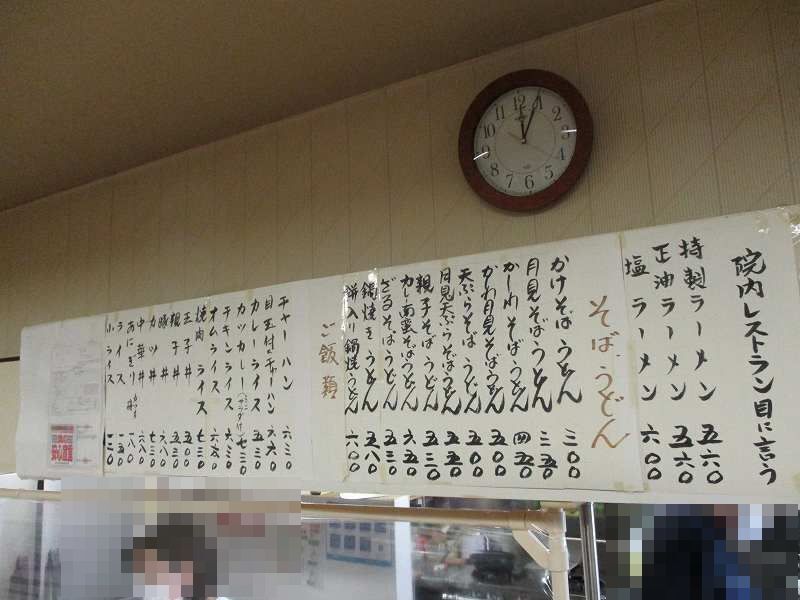 院内レストラン 目に言う
特製ラーメン 五六〇
正油ラーメン 五六〇
塩ラーメン 六〇〇
そば.うどん
かけそばうどん 三〇〇
月見そばうどん 三五〇
カレーそばうどん 四五〇
かわ月見そばうどん 五〇〇
天ぷらそばうどん 五〇〇
月見天ぷらそばうどん 五五〇
親子そばうどん 五三〇
カレー南蛮そばうどん 六五〇
ざるそばうどん 五五〇
鍋焼きうどん 五八〇
餅入り鍋焼うどん 六〇〇
ご飯類
チャーハン 六三〇
目玉付チャーハン 六六〇
カレーライス 五三〇
カツカレー 七三〇
チキンライス 六三〇
オムライス 六五〇
焼肉ライス 七三〇
玉子丼 五〇〇
親子丼 五五〇
豚丼 六八〇
カツ丼 七三〇
中華丼 六八〇
おにぎり 一八〇
ライス 一五〇
小ライス 一二〇
12
1
2
3
4
5
6
7
8
9
10
11